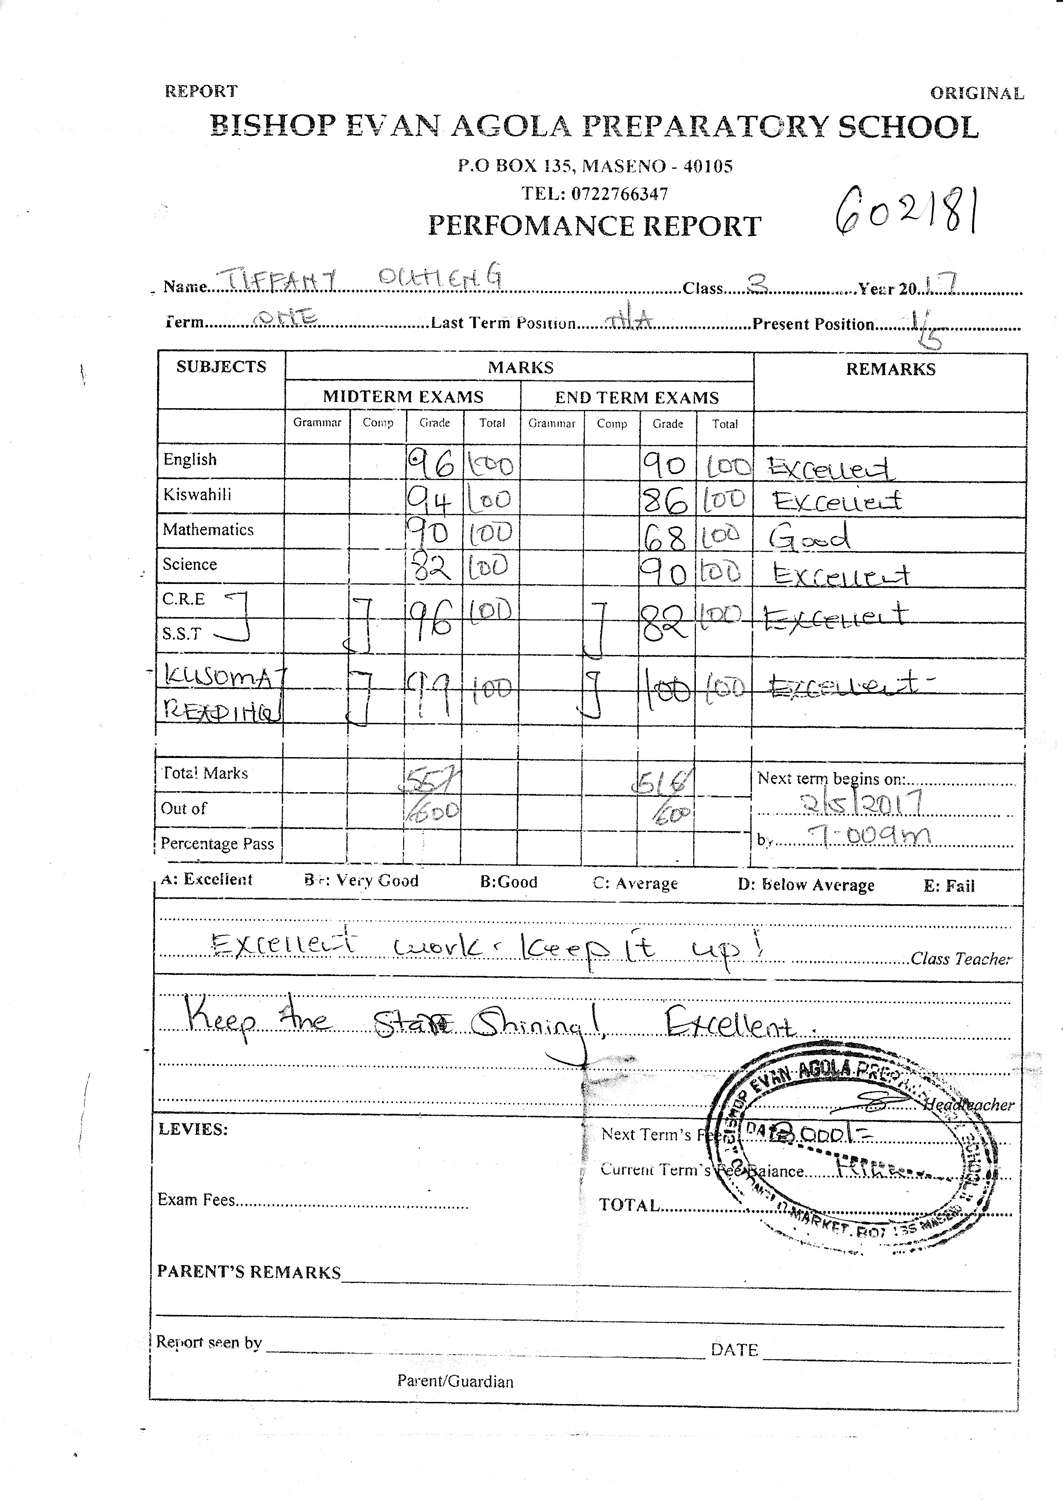 REPORT ORIGINAL
BISHOP EVAN AGOLA PREPARATORY SCHOOL
P.O BOX 135, MASENO - 40105
TEL: 0722766347
PERFOMANCE REPORT 602181
Name...TIFFANY OCHIENG...Class...3...Year 20..17...
Term...ONE...Last Term Position...N/A...Present Position...1/15
SUBJECTS MARKS REMARKS
MIDTERM EXAMS END TERM EXAMS
Grammar Comp Grade Total Grammar Comp Grade Total
English 96 100 90 100 Excellent
Kiswahili 94 100 86 100 Excellent
Mathematics 90 100 68 100 Good
Science 82 100 90 100 Excellent
C.R.E
S.S.T 96 100 82 100 Excellent
KUSOMA
READING 99 100 100 100 Excellent
Total Marks 557 516 Next term begins on:...
Out of 600 600 2/5/2017
Percentage Pass by...7:00am
A: Excellent B+: Very Good B:Good C: Average D: below Average E: Fail
Excellent work. Keep it up! Class Teacher
Keep the Star Shining! Excellent.
Headteacher
BISHOP EVAN AGOLA PREPARATORY SCHOOL
MARKET. BOX 135 MASENO
DATE
LEVIES: Next Term's Fees 3000/=
Current Term's Fee Balance...
Exam Fees... TOTAL...
PARENT'S REMARKS
Report seen by DATE
Parent/Guardian